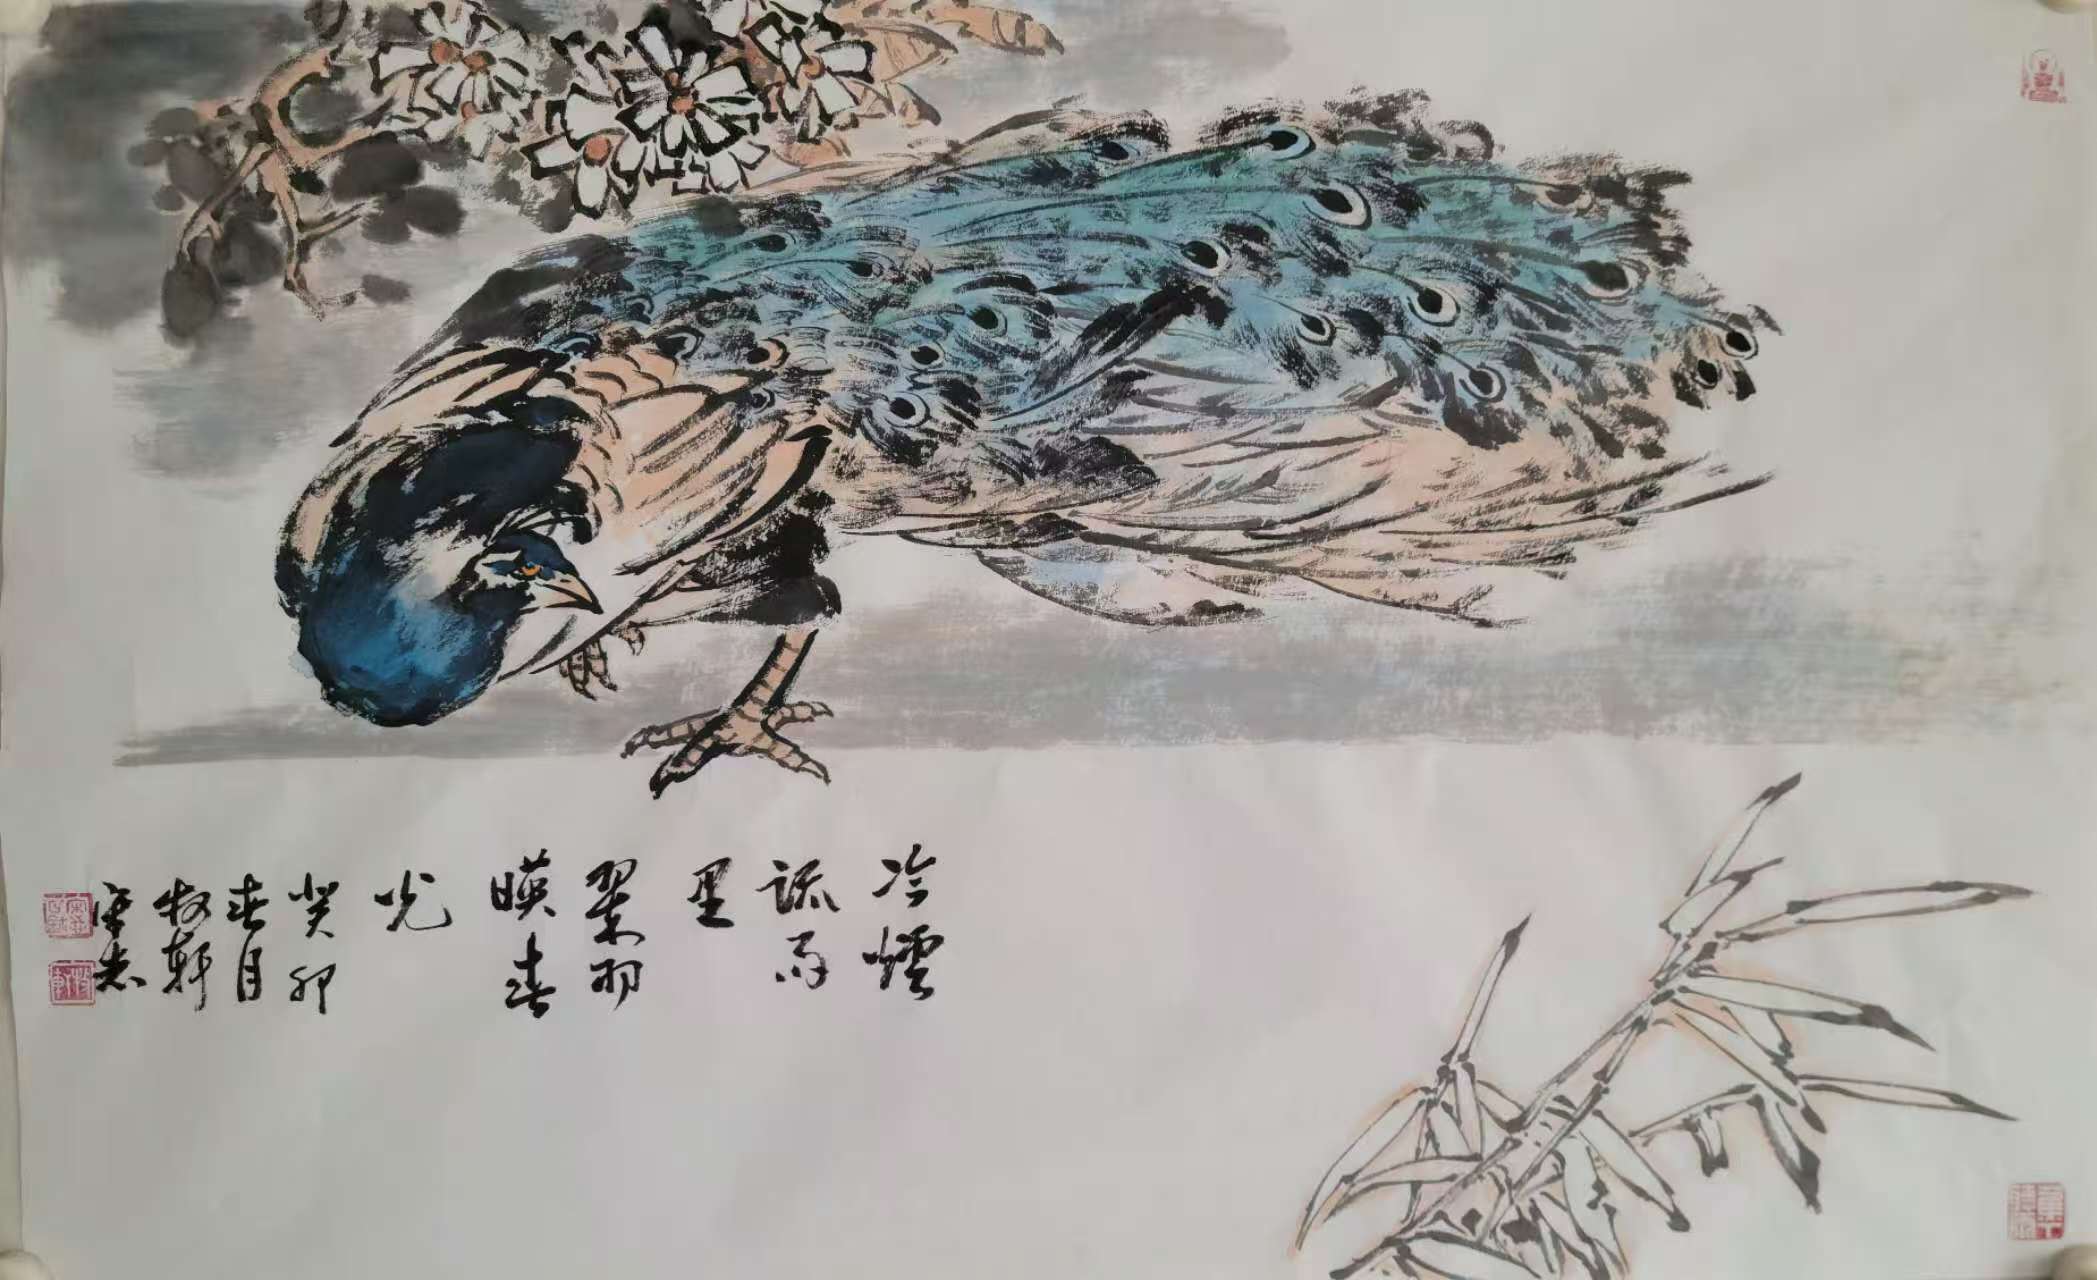 冷烟
疏雨
里
翠羽
暎春
光
癸卯
春月
牧轩
宋志